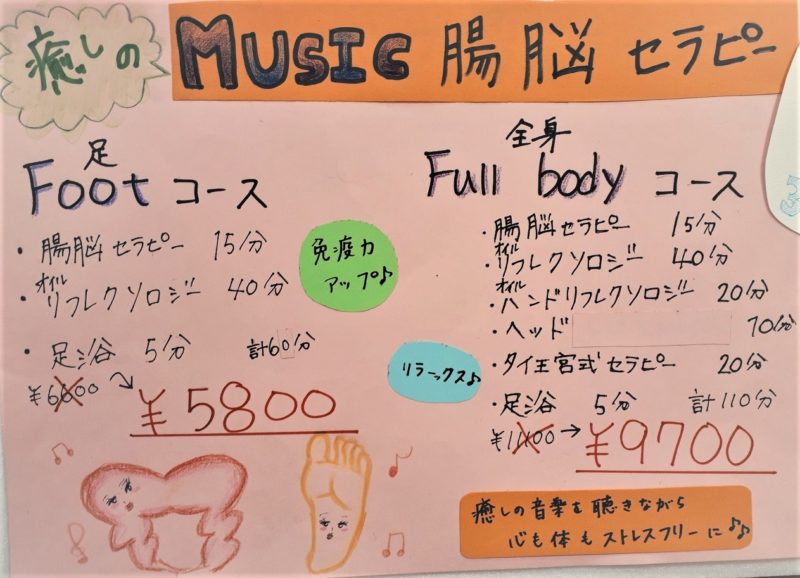 癒しの MUSIC 腸脳セラピー
足
Foot コース
・腸脳セラピー 15分
オイル
・リフレクソロジー 40分
・足浴 5分 計60分
¥6600→¥5800
免疫力
アップ♪
リラックス♪
全身
Full body コース
・腸脳セラピー 15分
オイル
・リフレクソロジー 40分
オイル
・ハンドリフレクソロジー 20分
・ヘッド 10分
・タイ王宮式セラピー 20分
・足浴 5分 計110分
→¥9700
癒しの音楽を聴きながら
心も体もストレスフリーに♪♪